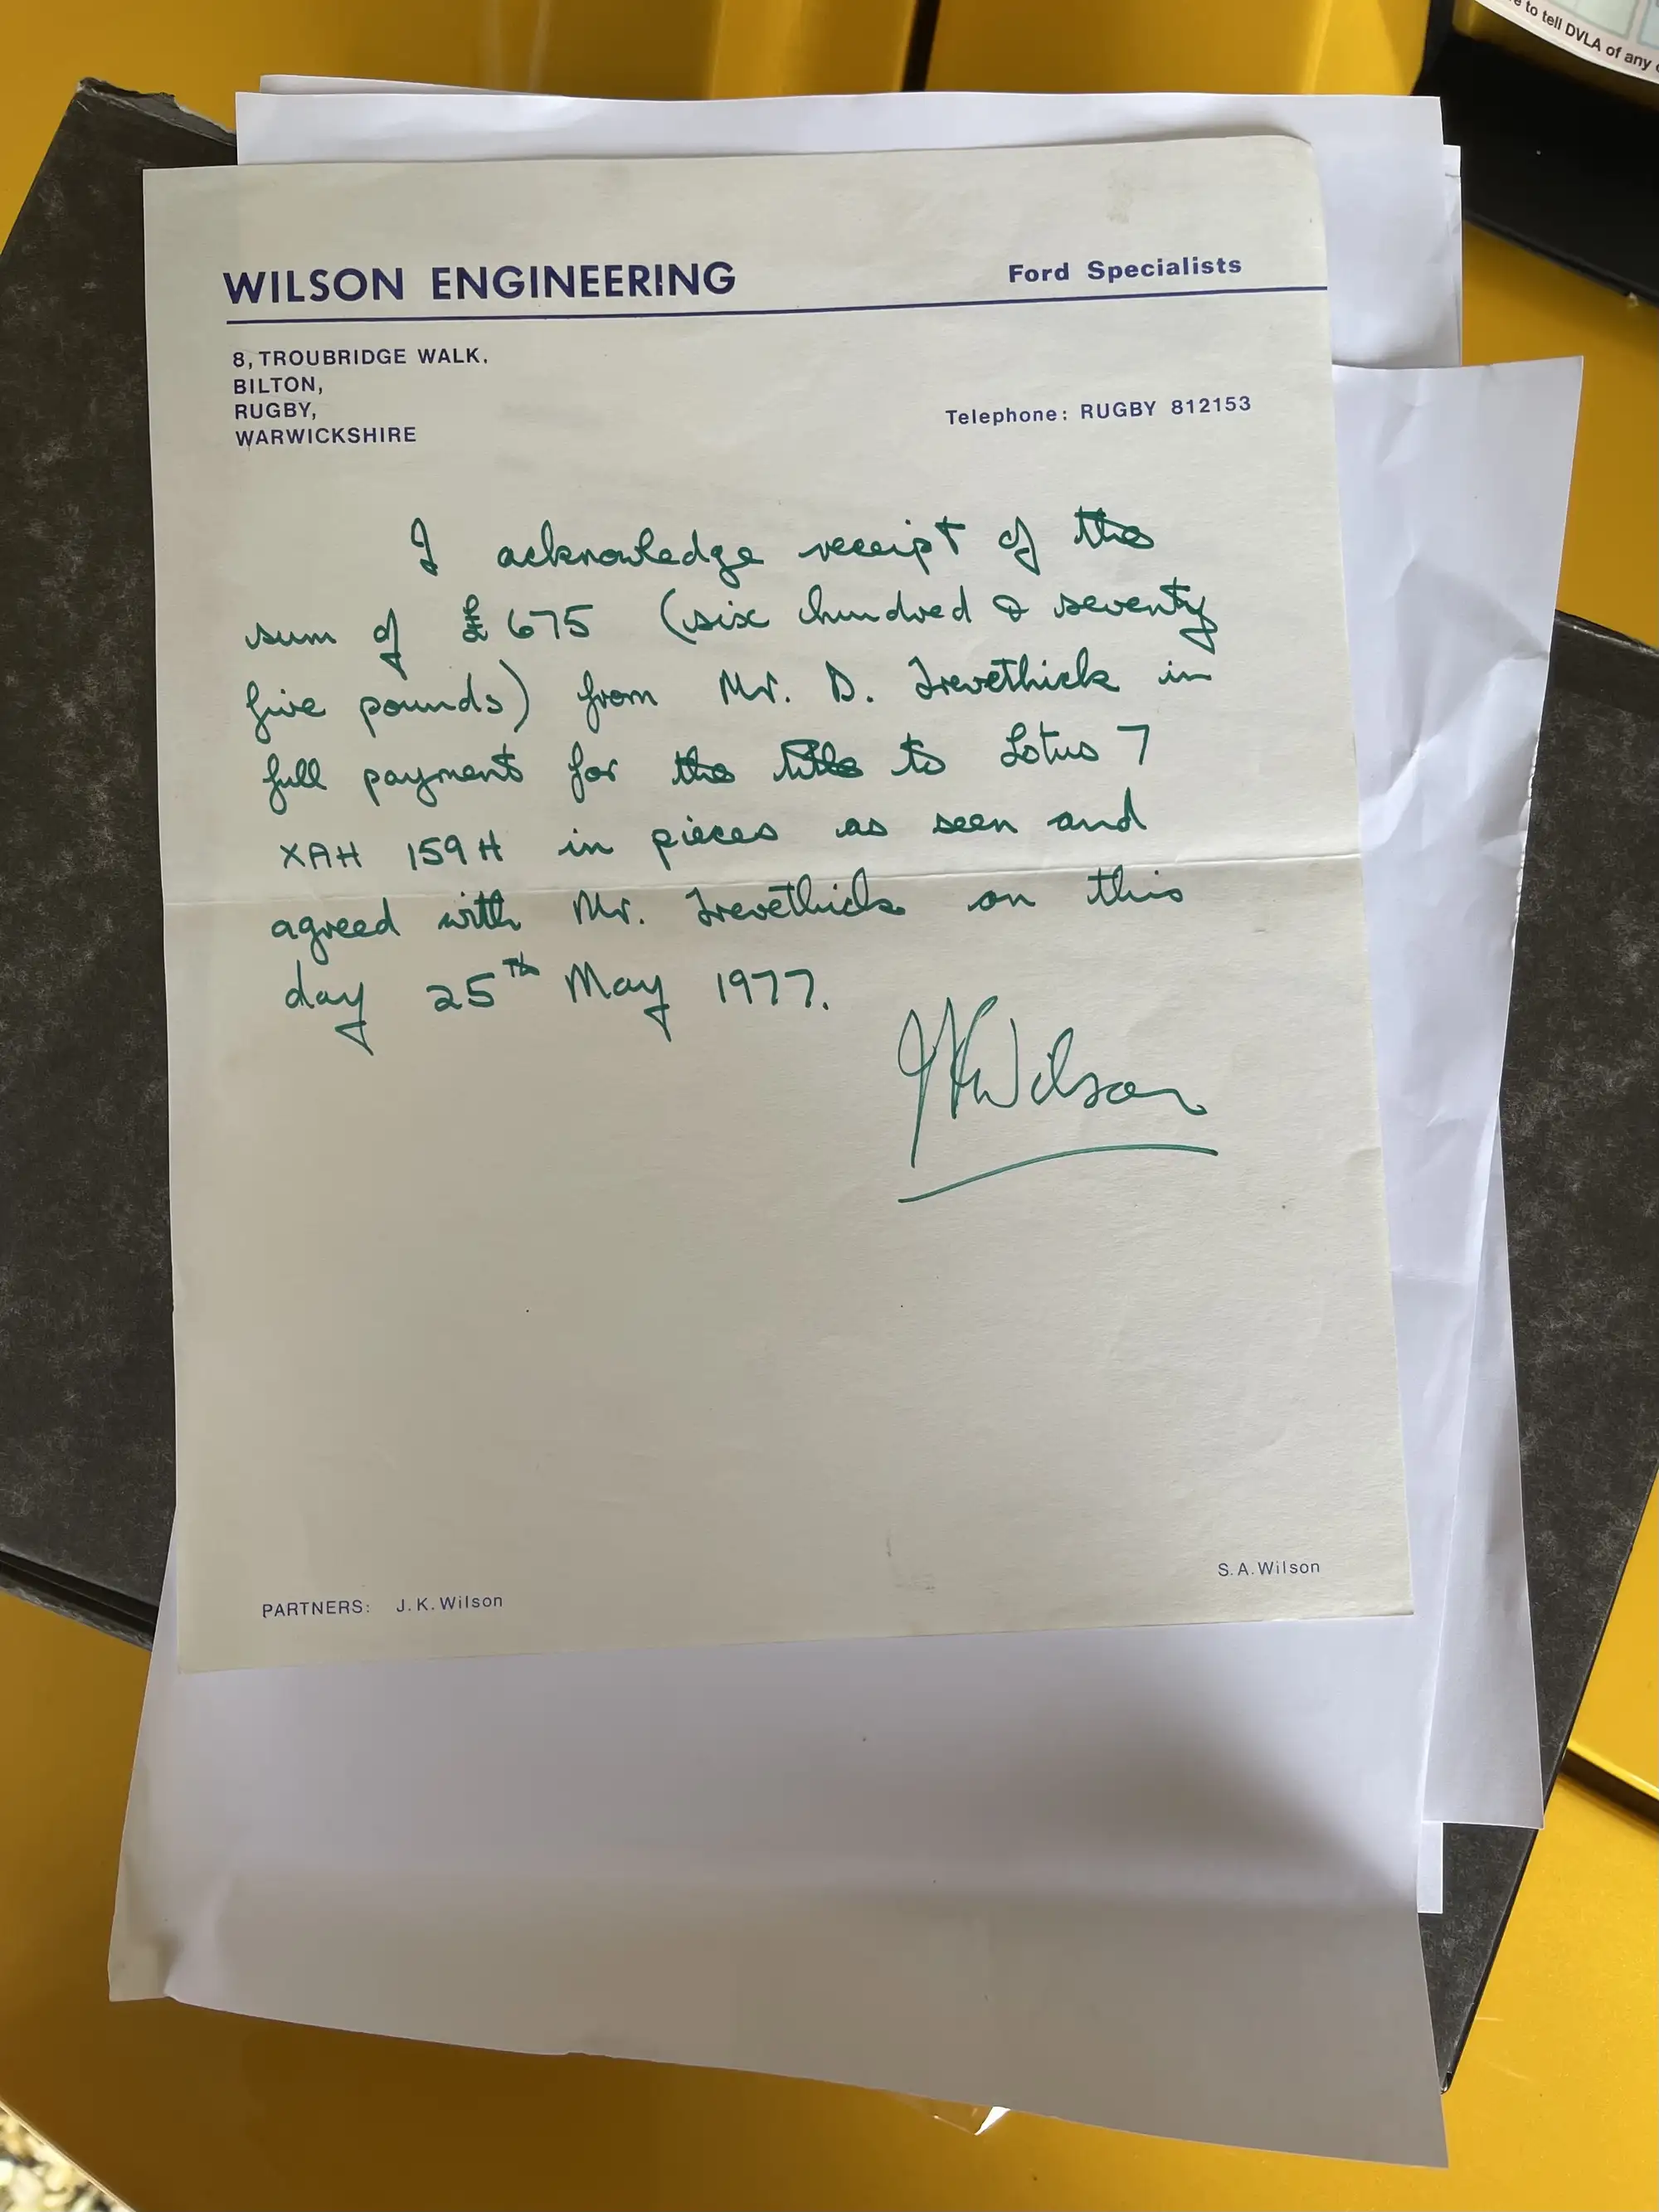 e to tell DVLA of any c
WILSON ENGINEERING
Ford Specialists
8, TROUBRIDGE WALK.
BILTON,
RUGBY,
WARWICKSHIRE
Telephone: RUGBY 812153
I acknowledge receipt of the
sum of £675 (six hundred & seventy
five pounds) from Mr. D. Trevethick in
full payment for the title to Lotus 7
XAH 159H in pieces as seen and
agreed with Mr. Trevethick on this
day 25th May 1977.
JKWilson
S.A.Wilson
PARTNERS: J.K.Wilson